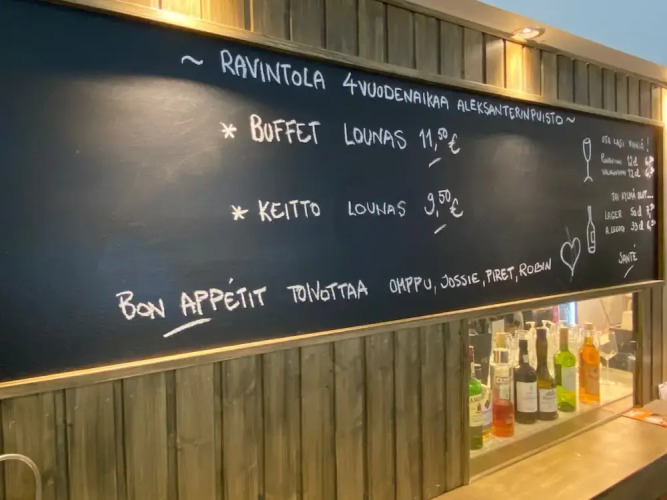 ~ RAVINTOLA 4VUODENAIKAA ALEKSANTERINPUISTO ~
* BUFFET LOUNAS 11,50 €
* KEITTO LOUNAS 9,50 €
BON APPÉTIT TOIVOTTAA OMPPU, JOSSIE, PIRET, ROBIN
LASI VIINIÄ!
12 cl
12 cl
TAI KYLMÄ OLUT...
LAGER
SANTÉ